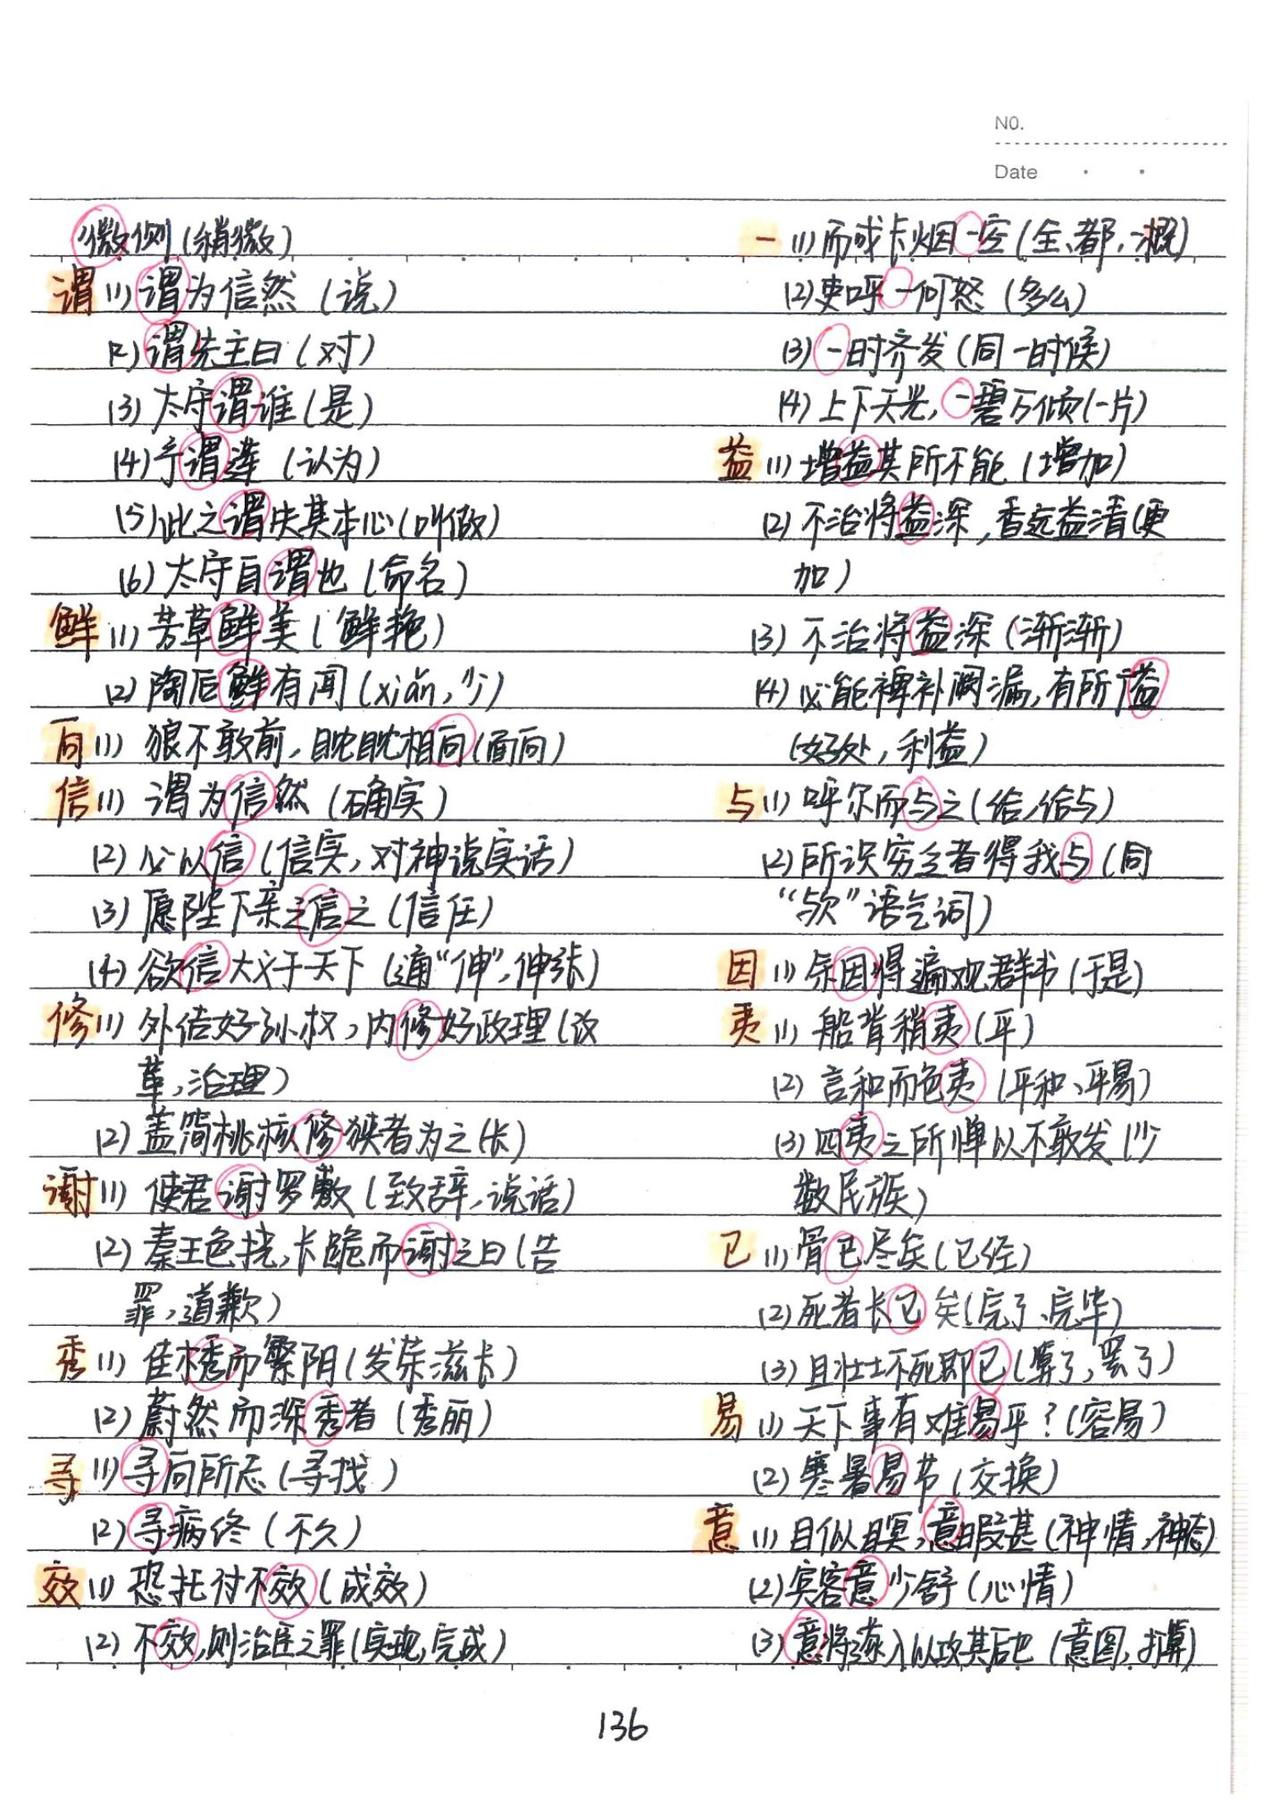 NO.
Date
微侧(稍微)
谓(1)谓为信然(说)
(2)谓先主曰(对)
(3)太守谓谁(是)
(4)予谓莲(认为)
(5)此之谓失其本心(叫做)
(6)太守自谓也(命名)
鲜(1)芳草鲜美(鲜艳)
(2)陶后鲜有闻(xiǎn,少)
向(1)狼不敢前,眈眈相向(面向)
信(1)谓为信然(确实)
(2)必以信(信实,对神说实话)
(3)愿陛下亲之信之(信任)
(4)欲信大义于天下(通“伸”,伸张)
修(1)外结好孙权,内修好政理(改
革,治理)
(2)盖简桃核修狭者为之(长)
谢(1)使君谢罗敷(致辞,说话)
(2)秦王色挠,长跪而谢之曰(告
罪,道歉)
秀(1)佳木秀而繁阴(发荣滋长)
(2)蔚然而深秀者(秀丽)
寻(1)寻向所志(寻找)
(2)寻病终(不久)
效(1)恐托付不效(成效)
(2)不效,则治臣之罪(实现,完成)
一(1)而或长烟一空(全、都、一概)
(2)吏呼一何怒(多么)
(3)一时齐发(同一时候)
(4)上下天光,一碧万倾(一片)
益(1)增益其所不能(增加)
(2)不治将益深,香远益清(更
加)
(3)不治将益深(渐渐)
(4)必能裨补阙漏,有所广益
(好处,利益)
与(1)呼尔而与之(给,给与)
(2)所识穷乏者得我与(同
“欤”语气词)
因(1)余因得遍观群书(于是)
夷(1)船背稍夷(平)
(2)言和而色夷(平和、平易)
(3)四夷之所惮以不敢发(少
数民族)
已(1)骨已尽矣(已经)
(2)死者长已矣(完了、完毕)
(3)且壮士不死即已(算了,罢了)
易(1)天下事有难易乎?(容易)
(2)寒暑易节(交换)
意(1)目似瞑,意暇甚(神情,神态)
(2)宾客意少舒(心情)
(3)意将隧入以攻其后也(意图,打算)
136